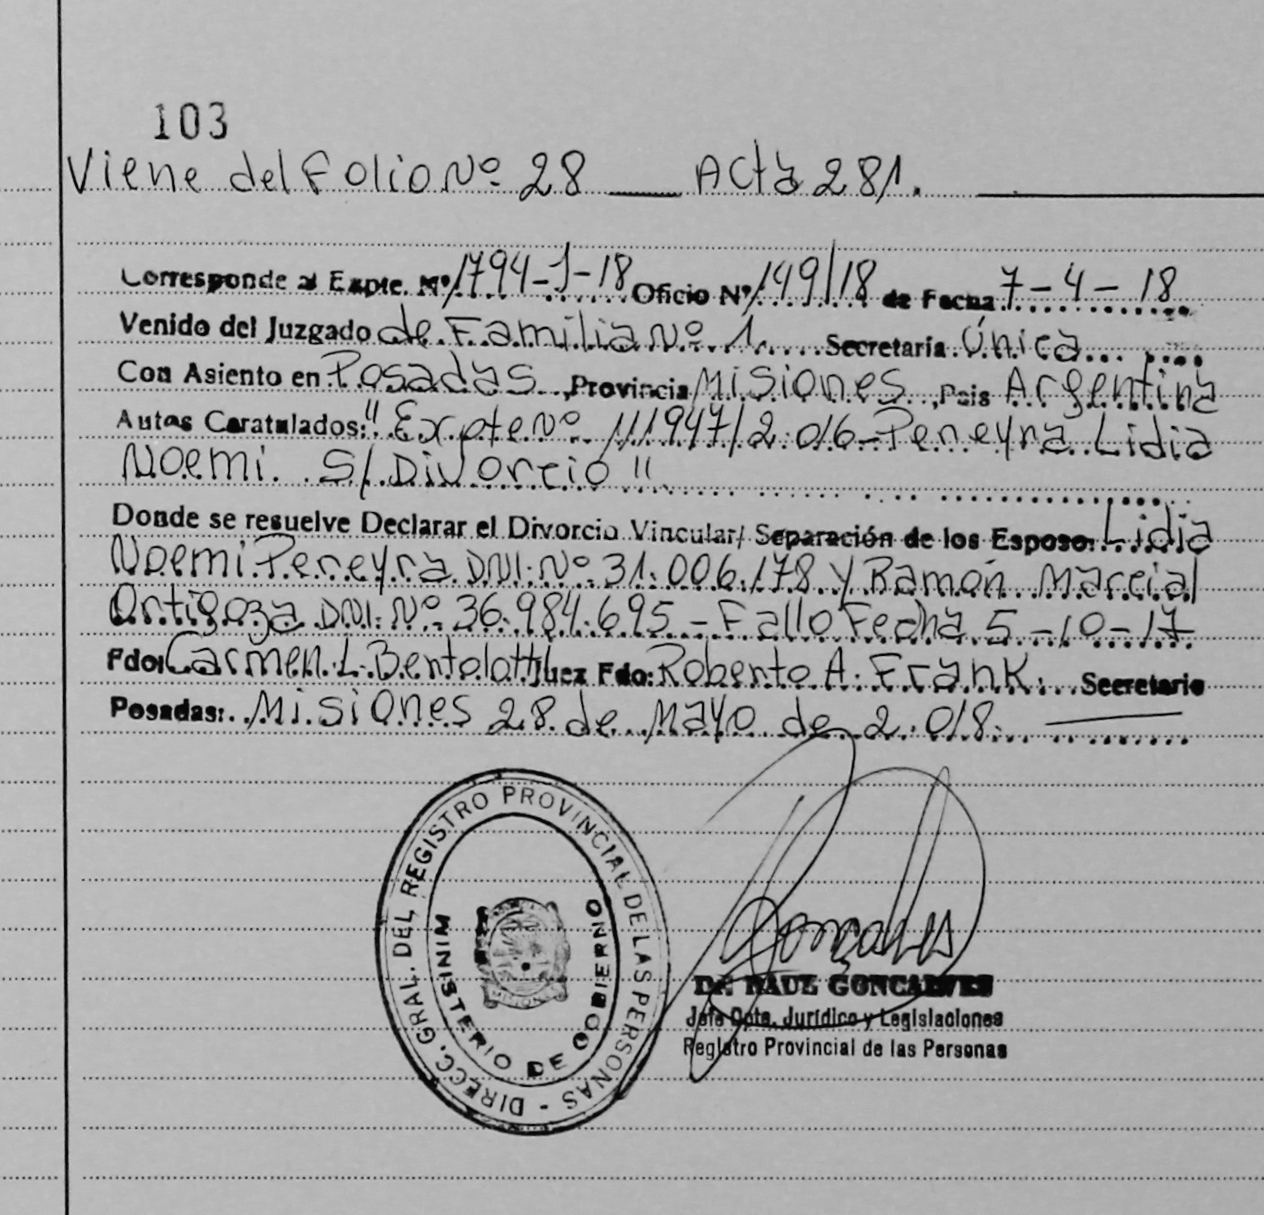 103
Viene del Folio Nº 28 ___ Acta 281.
Corresponde al Expte. Nº 1794-J-18 Oficio Nº 149/18 de Fecha 7-4-18
Venido del Juzgado de Familia Nº 1. Secretaría Única
Con Asiento en Posadas, Provincia Misiones, Pais Argentina
Autos Caratulados: "Expte Nº 111947/2.016-Pereyra Lidia
Noemi S/Divorcio"
Donde se resuelve Declarar el Divorcio Vincular/ Separación de los Esposo: Lidia
Noemi Pereyra DNI. Nº 31.006.178 y Ramón Marcial
Ortigoza DNI. Nº 36.984.695 - Fallo Fecha 5-10-17
Fdo: Carmen L. Bentolotti Juez Fdo: Roberto A. Frank. Secretario
Posadas: Misiones 28 de Mayo de 2.018.
DIRECC. GRAL. DEL REGISTRO PROVINCIAL DE LAS PERSONAS -
MINISTERIO DE GOBIERNO
Goncalves
Dr. RAUL GONCALVES
Jefe Dpto. Jurídico y Legislaciones
Registro Provincial de las Personas